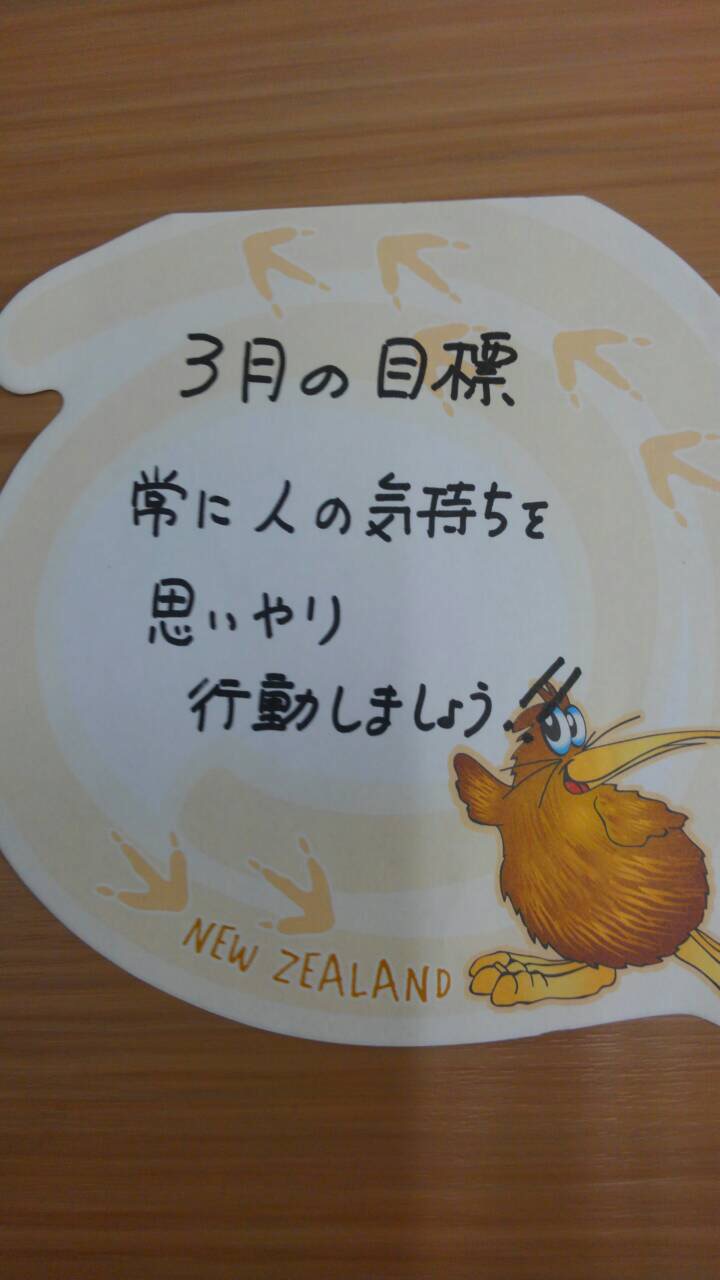 3月の目標
常に人の気持ちを
思いやり
行動しましょう!!
NEW ZEALAND